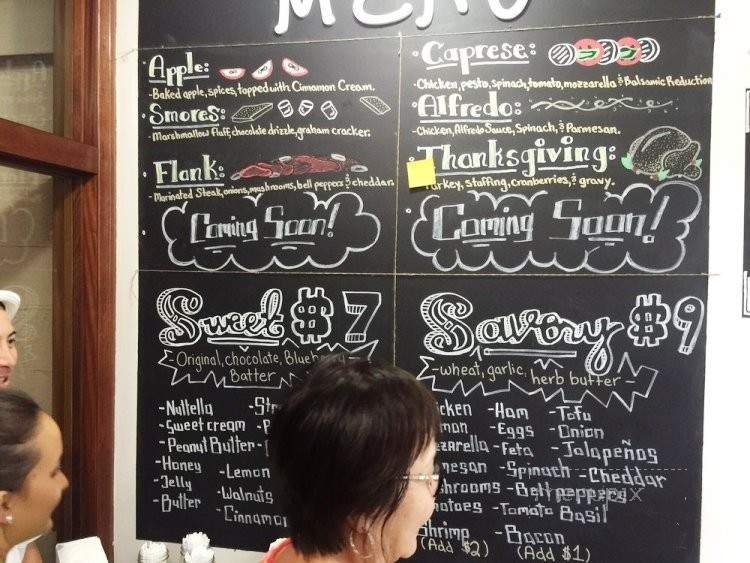 MENU
Apple:
-Baked apple, spices, topped with Cinnamon Cream.
Smores:
-Marshmallow fluff, chocolate drizzle, graham cracker.
Flank:
-Marinated Steak, onions, mushrooms, bell peppers & cheddar.
Coming Soon!
Caprese:
-Chicken, pesto, spinach, tomato, mozzarella & Balsamic Reduction
Alfredo:
-Chicken, Alfredo Sauce, Spinach, & Parmesan.
Thanksgiving:
Turkey, stuffing, cranberries, & gravy.
Coming Soon!
Sweet $7
-Original, chocolate, Blueberry-
Batter
-Nutella
-Sweet cream
-Peanut Butter
-Honey
-Jelly
-Butter
-Lemon
-Walnuts
-Cinnamon
Savory $9
-wheat, garlic, herb butter-
-Ham
-Eggs
-Feta
-Spinach
-Bell peppers
-Tomato Basil
-Bacon
(Add $1)
-Tofu
-Onion
-Jalapeños
-Cheddar
Shrimp
(Add $2)